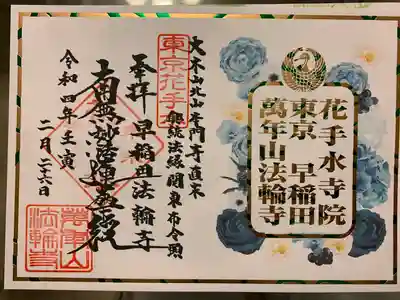 花手水寺院
東京 早稲田
萬年山法輪寺
大本山北山本門寺直末
東京花手水
奉拝 早稲田法輪寺
南無妙法蓮華経
令和四年壬寅
二月二十六日
萬年山
法輪寺